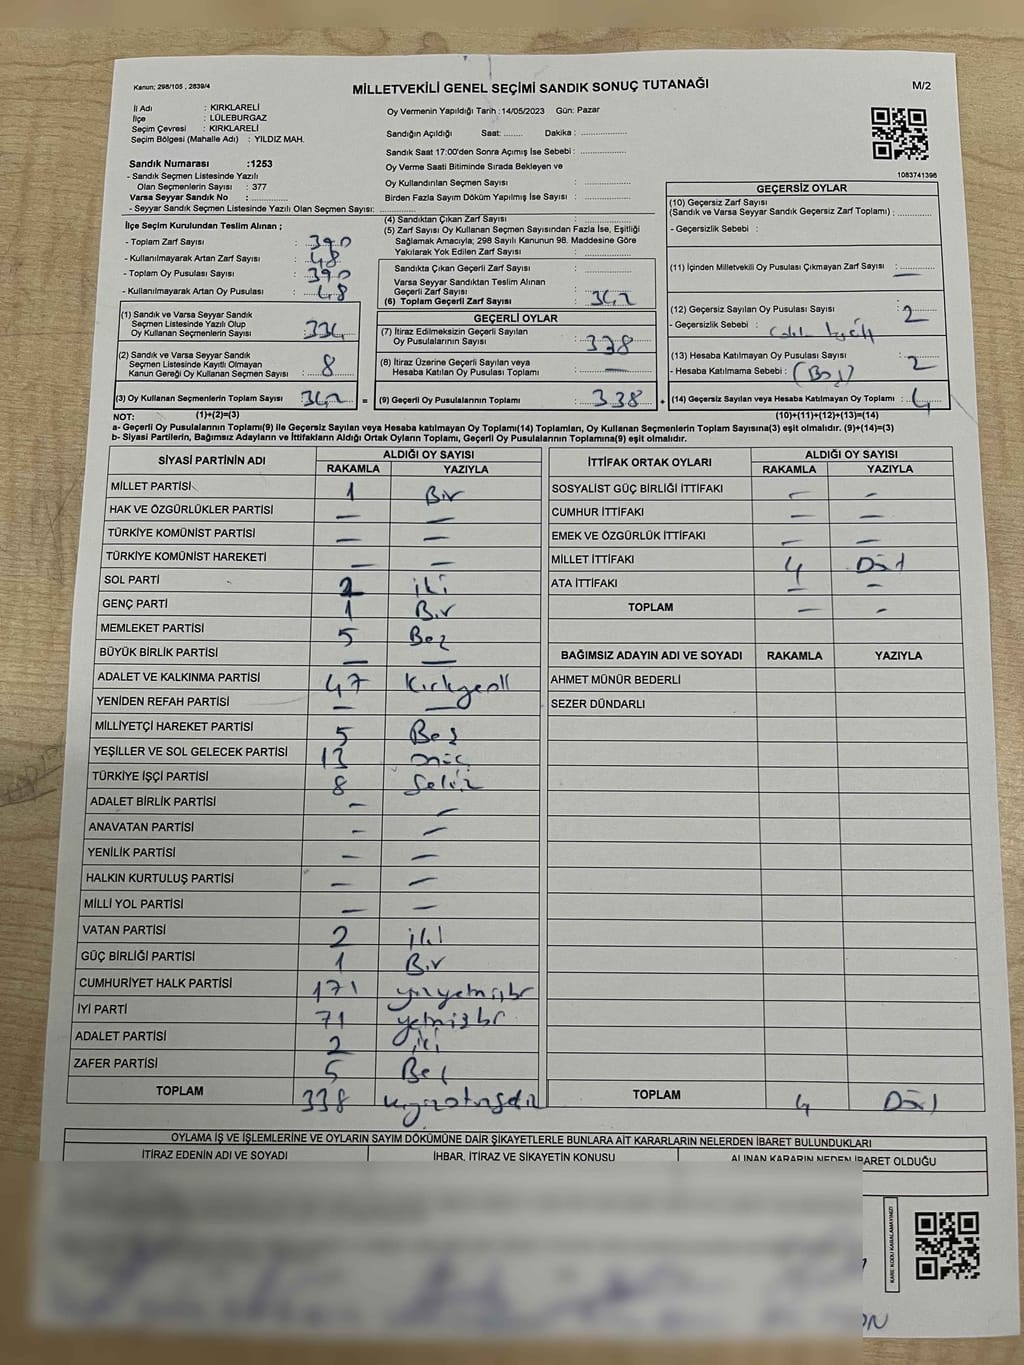 Kanun; 298/105 , 2839/4
MİLLETVEKİLİ GENEL SEÇİMİ SANDIK SONUÇ TUTANAĞI
M/2
İl Adı : KIRKLARELİ
İlçe : LÜLEBURGAZ
Seçim Çevresi : KIRKLARELİ
Seçim Bölgesi (Mahalle Adı) : YILDIZ MAH.
Sandık Numarası :1253
- Sandık Seçmen Listesinde Yazılı
Olan Seçmenlerin Sayısı : 377
Varsa Seyyar Sandık No :
- Seyyar Sandık Seçmen Listesinde Yazılı Olan Seçmen Sayısı:
Oy Vermenin Yapıldığı Tarih :14/05/2023 Gün: Pazar
Sandığın Açıldığı Saat: Dakika :
Sandık Saat 17:00'den Sonra Açımış İse Sebebi :
Oy Verme Saati Bitiminde Sırada Bekleyen ve
Oy Kullandırılan Seçmen Sayısı :
Birden Fazla Sayım Döküm Yapılmış İse Sayısı :
1083741396
İlçe Seçim Kurulundan Teslim Alınan ;
- Toplam Zarf Sayısı : 390
- Kullanılmayarak Artan Zarf Sayısı : 48
- Toplam Oy Pusulası Sayısı : 390
- Kullanılmayarak Artan Oy Pusulası : 48
(1) Sandık ve Varsa Seyyar Sandık
Seçmen Listesinde Yazılı Olup
Oy Kullanan Seçmenlerin Sayısı : 334
(2) Sandık ve Varsa Seyyar Sandık
Seçmen Listesinde Kayıtlı Olmayan
Kanun Gereği Oy Kullanan Seçmen Sayısı : 8
(3) Oy Kullanan Seçmenlerin Toplam Sayısı : 342
(4) Sandıktan Çıkan Zarf Sayısı :
(5) Zarf Sayısı Oy Kullanan Seçmen Sayısından Fazla İse, Eşitliği
Sağlamak Amacıyla; 298 Sayılı Kanunun 98. Maddesine Göre
Yakılarak Yok Edilen Zarf Sayısı :
Sandıkta Çıkan Geçerli Zarf Sayısı :
Varsa Seyyar Sandıktan Teslim Alınan
Geçerli Zarf Sayısı :
(6) Toplam Geçerli Zarf Sayısı : 342
GEÇERLİ OYLAR
(7) İtiraz Edilmeksizin Geçerli Sayılan
Oy Pusulalarının Sayısı : 338
(8) İtiraz Üzerine Geçerli Sayılan veya
Hesaba Katılan Oy Pusulası Toplamı : —
= (9) Geçerli Oy Pusulalarının Toplamı : 338
GEÇERSİZ OYLAR
(10) Geçersiz Zarf Sayısı
(Sandık ve Varsa Seyyar Sandık Geçersiz Zarf Toplamı) :
- Geçersizlik Sebebi :
(11) İçinden Milletvekili Oy Pusulası Çıkmayan Zarf Sayısı : —
(12) Geçersiz Sayılan Oy Pusulası Sayısı : 2
- Geçersizlik Sebebi :
(13) Hesaba Katılmayan Oy Pusulası Sayısı : 2
- Hesaba Katılmama Sebebi : (Boş)
+ (14) Geçersiz Sayılan veya Hesaba Katılmayan Oy Toplamı : 4
NOT: (1)+(2)=(3) (10)+(11)+(12)+(13)=(14)
a- Geçerli Oy Pusulalarının Toplamı(9) ile Geçersiz Sayılan veya Hesaba katılmayan Oy Toplamı(14) Toplamları, Oy Kullanan Seçmenlerin Toplam Sayısına(3) eşit olmalıdır. (9)+(14)=(3)
b- Siyasi Partilerin, Bağımsız Adayların ve İttifakların Aldığı Ortak Oyların Toplamı, Geçerli Oy Pusulalarının Toplamına(9) eşit olmalıdır.
SİYASİ PARTİNİN ADI ALDIĞI OY SAYISI
RAKAMLA YAZIYLA
MİLLET PARTİSİ 1 Bir
HAK VE ÖZGÜRLÜKLER PARTİSİ — —
TÜRKİYE KOMÜNİST PARTİSİ — —
TÜRKİYE KOMÜNİST HAREKETİ — —
SOL PARTİ 2 iki
GENÇ PARTİ 1 Bir
MEMLEKET PARTİSİ 5 Beş
BÜYÜK BİRLİK PARTİSİ — —
ADALET VE KALKINMA PARTİSİ 47 Kırkyedi
YENİDEN REFAH PARTİSİ — —
MİLLİYETÇİ HAREKET PARTİSİ 5 Beş
YEŞİLLER VE SOL GELECEK PARTİSİ 13 onüç
TÜRKİYE İŞÇİ PARTİSİ 8 Sekiz
ADALET BİRLİK PARTİSİ — —
ANAVATAN PARTİSİ — —
YENİLİK PARTİSİ — —
HALKIN KURTULUŞ PARTİSİ — —
MİLLİ YOL PARTİSİ — —
VATAN PARTİSİ 2 iki
GÜÇ BİRLİĞİ PARTİSİ 1 Bir
CUMHURİYET HALK PARTİSİ 171 yüzyetmişbir
İYİ PARTİ 71 yetmişbir
ADALET PARTİSİ 2 iki
ZAFER PARTİSİ 5 Beş
TOPLAM 338 üçyüzotuzsekiz
İTTİFAK ORTAK OYLARI ALDIĞI OY SAYISI
RAKAMLA YAZIYLA
SOSYALİST GÜÇ BİRLİĞİ İTTİFAKI — —
CUMHUR İTTİFAKI — —
EMEK VE ÖZGÜRLÜK İTTİFAKI — —
MİLLET İTTİFAKI 4 Dört
ATA İTTİFAKI — —
TOPLAM — —
BAĞIMSIZ ADAYIN ADI VE SOYADI RAKAMLA YAZIYLA
AHMET MÜNÜR BEDERLİ
SEZER DÜNDARLI
TOPLAM 4 Dört
OYLAMA İŞ VE İŞLEMLERİNE VE OYLARIN SAYIM DÖKÜMÜNE DAİR ŞİKAYETLERLE BUNLARA AİT KARARLARIN NELERDEN İBARET BULUNDUKLARI
İTİRAZ EDENİN ADI VE SOYADI İHBAR, İTİRAZ VE SİKAYETİN KONUSU ALINAN KARARIN NEDEN İBARET OLDUĞU
KARE KODU KARALAMAYINIZ!